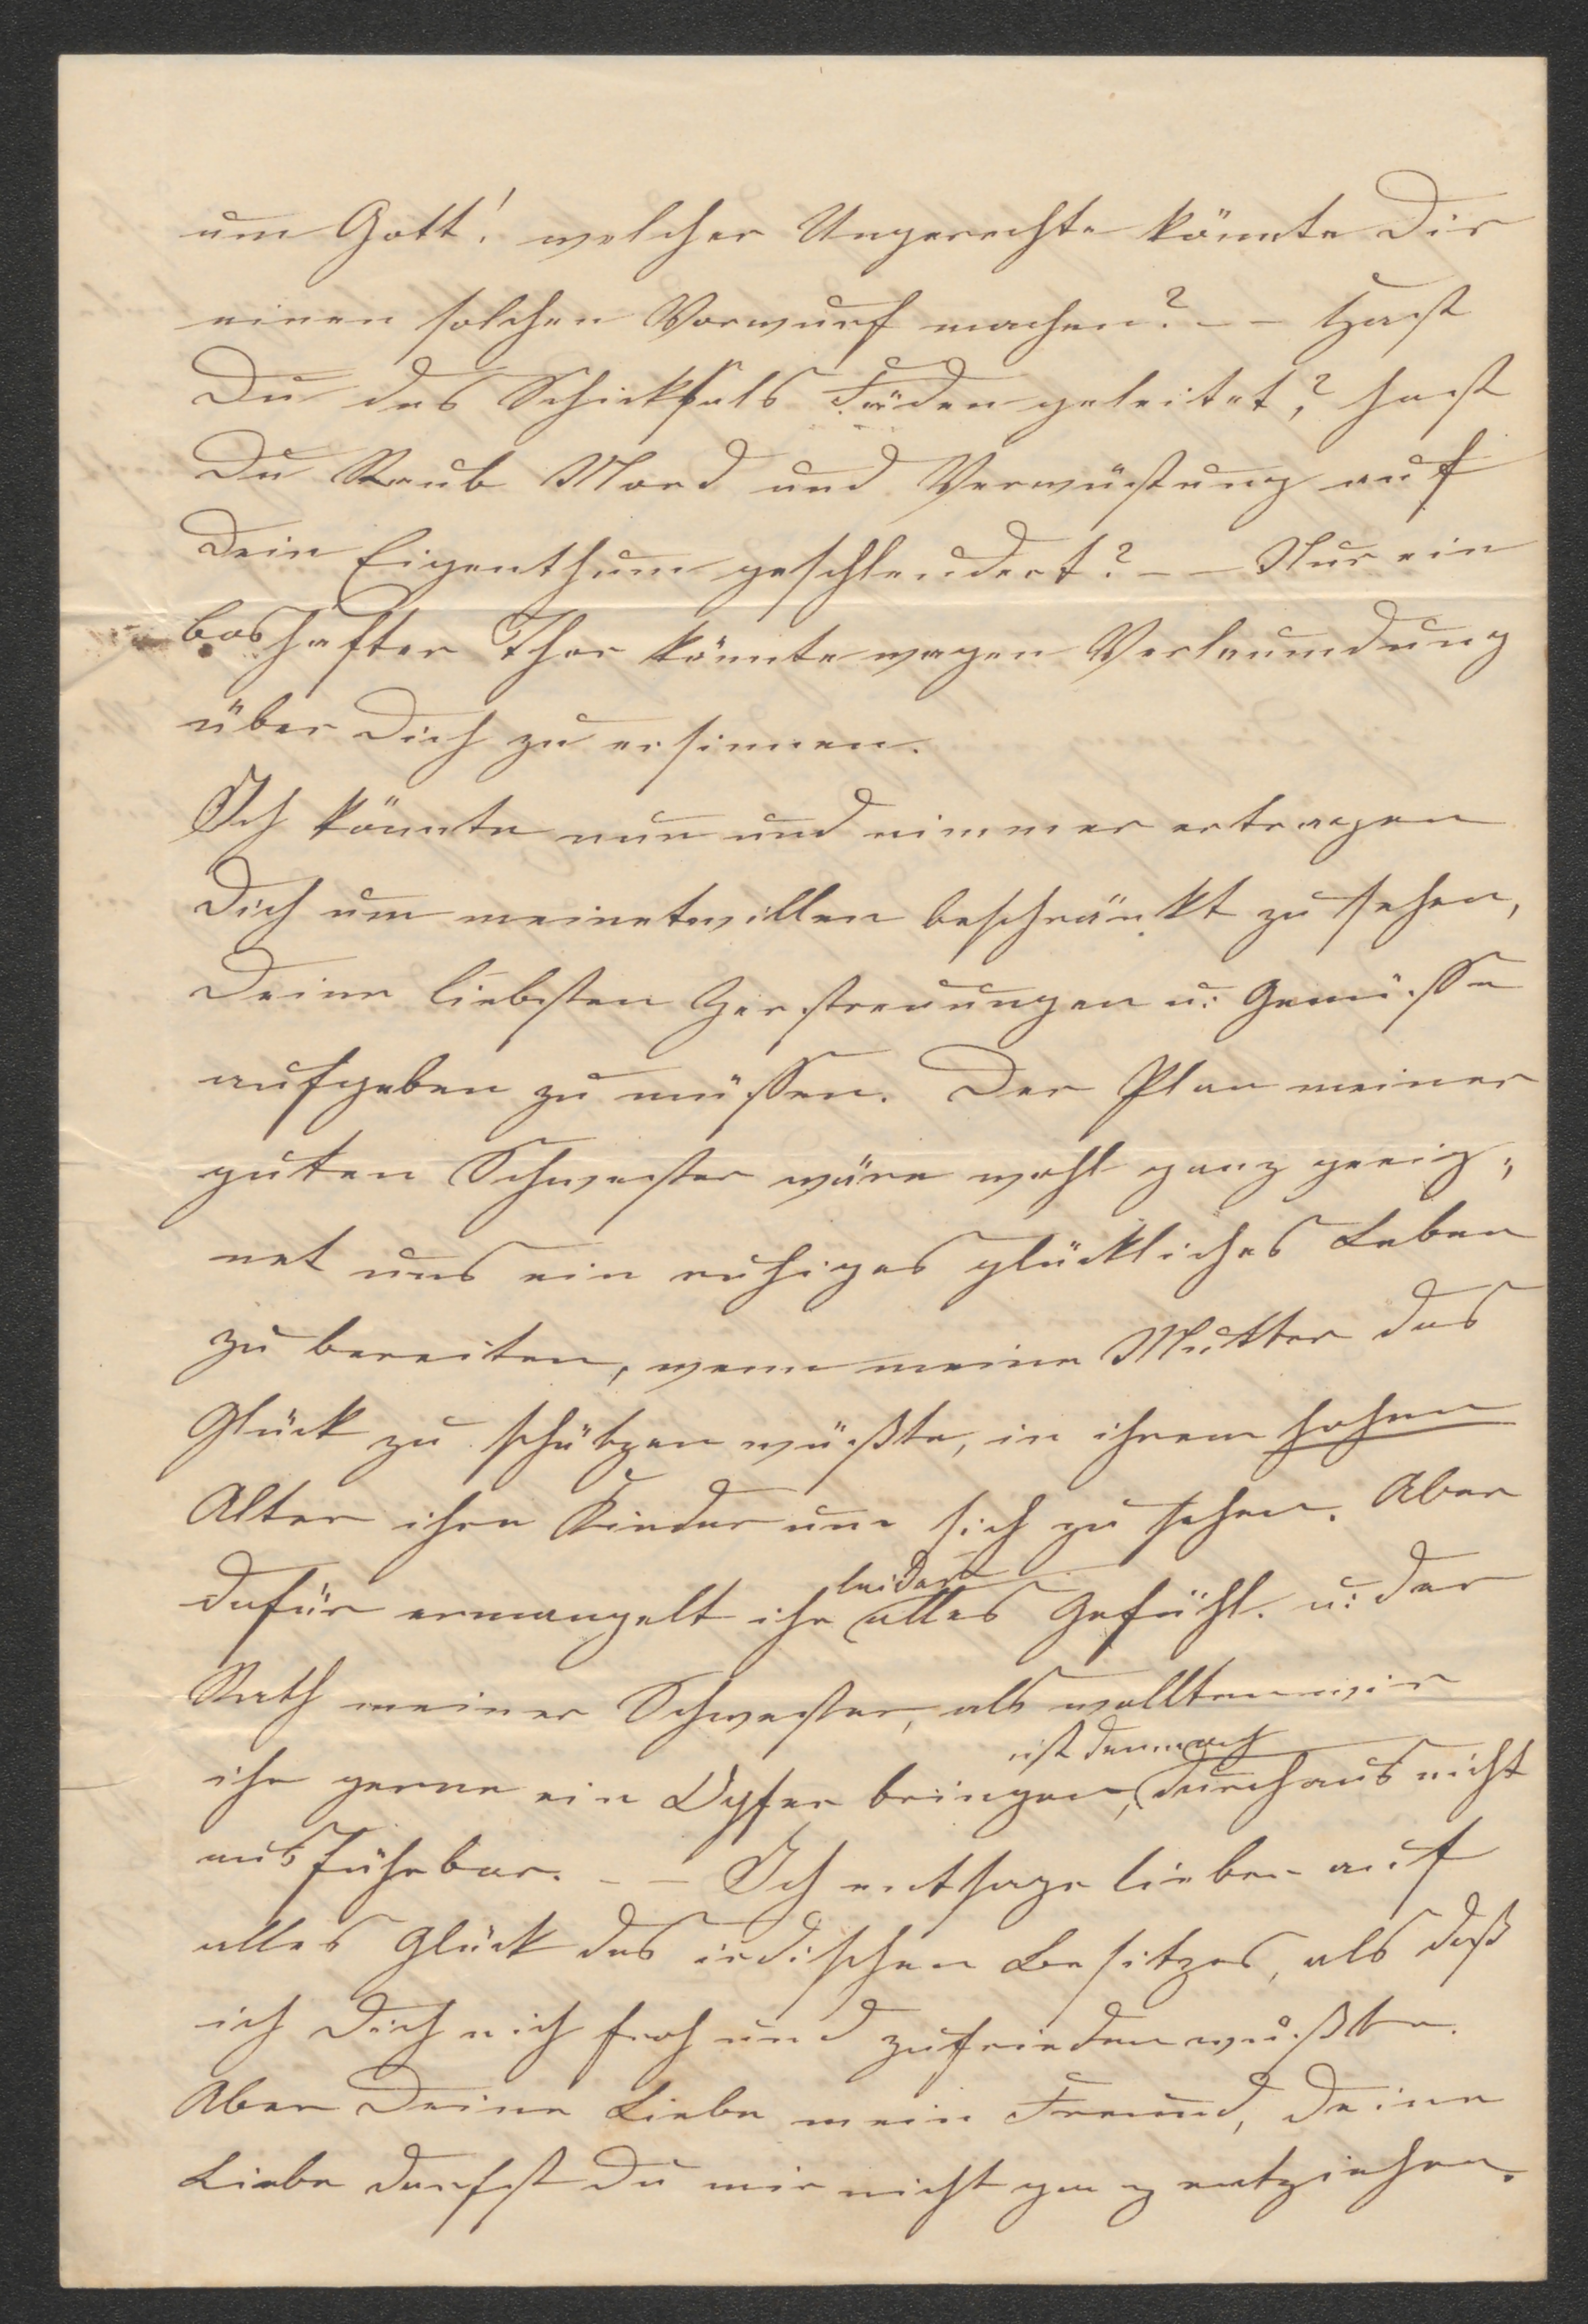 um Gott! welcher Ungerechte könnte Dir
einen solchen Vorwurf machen? – – Hast
Du des Schicksals Fäden geleitet,? hast
Du Raub Mord und Verwüstung auf
Dein Eigenthum geschleudert? – – Nur ein
boshafter Thor könnte wagen Verleumdung
über Dich zu ersinnen.
Ich könnte nun und nimmer ertragen
Dich um meinetwillen beschränkt zu sehen,
Deine liebsten Zerstreuungen u: Genüsse
aufgeben zu müssen. Der Plan meiner
guten Schwester wäre wohl ganz geeig„
net uns ein ruhiges glückliches Leben
zu bereiten, wenn meine Mutter das
Glück zu schätzen wüßte, in ihrem hohen
Alter ihre Kinder um sich zu sehen. Aber
dafür ermangelt ihr leider alles Gefühl. u: der
Rath meiner Schwester, als wollten wir
ihr gerne ein Opfer bringen, ist demnach durchaus nicht
ausführbar. – – Ich entsage lieber auf
alles Glück des irdischen Besitzes, als daß
ich Dich nich froh und zufrieden wüßte.
Aber Deine Liebe mein Freund, Deine
Liebe darfst Du mir nicht ganz entziehen.